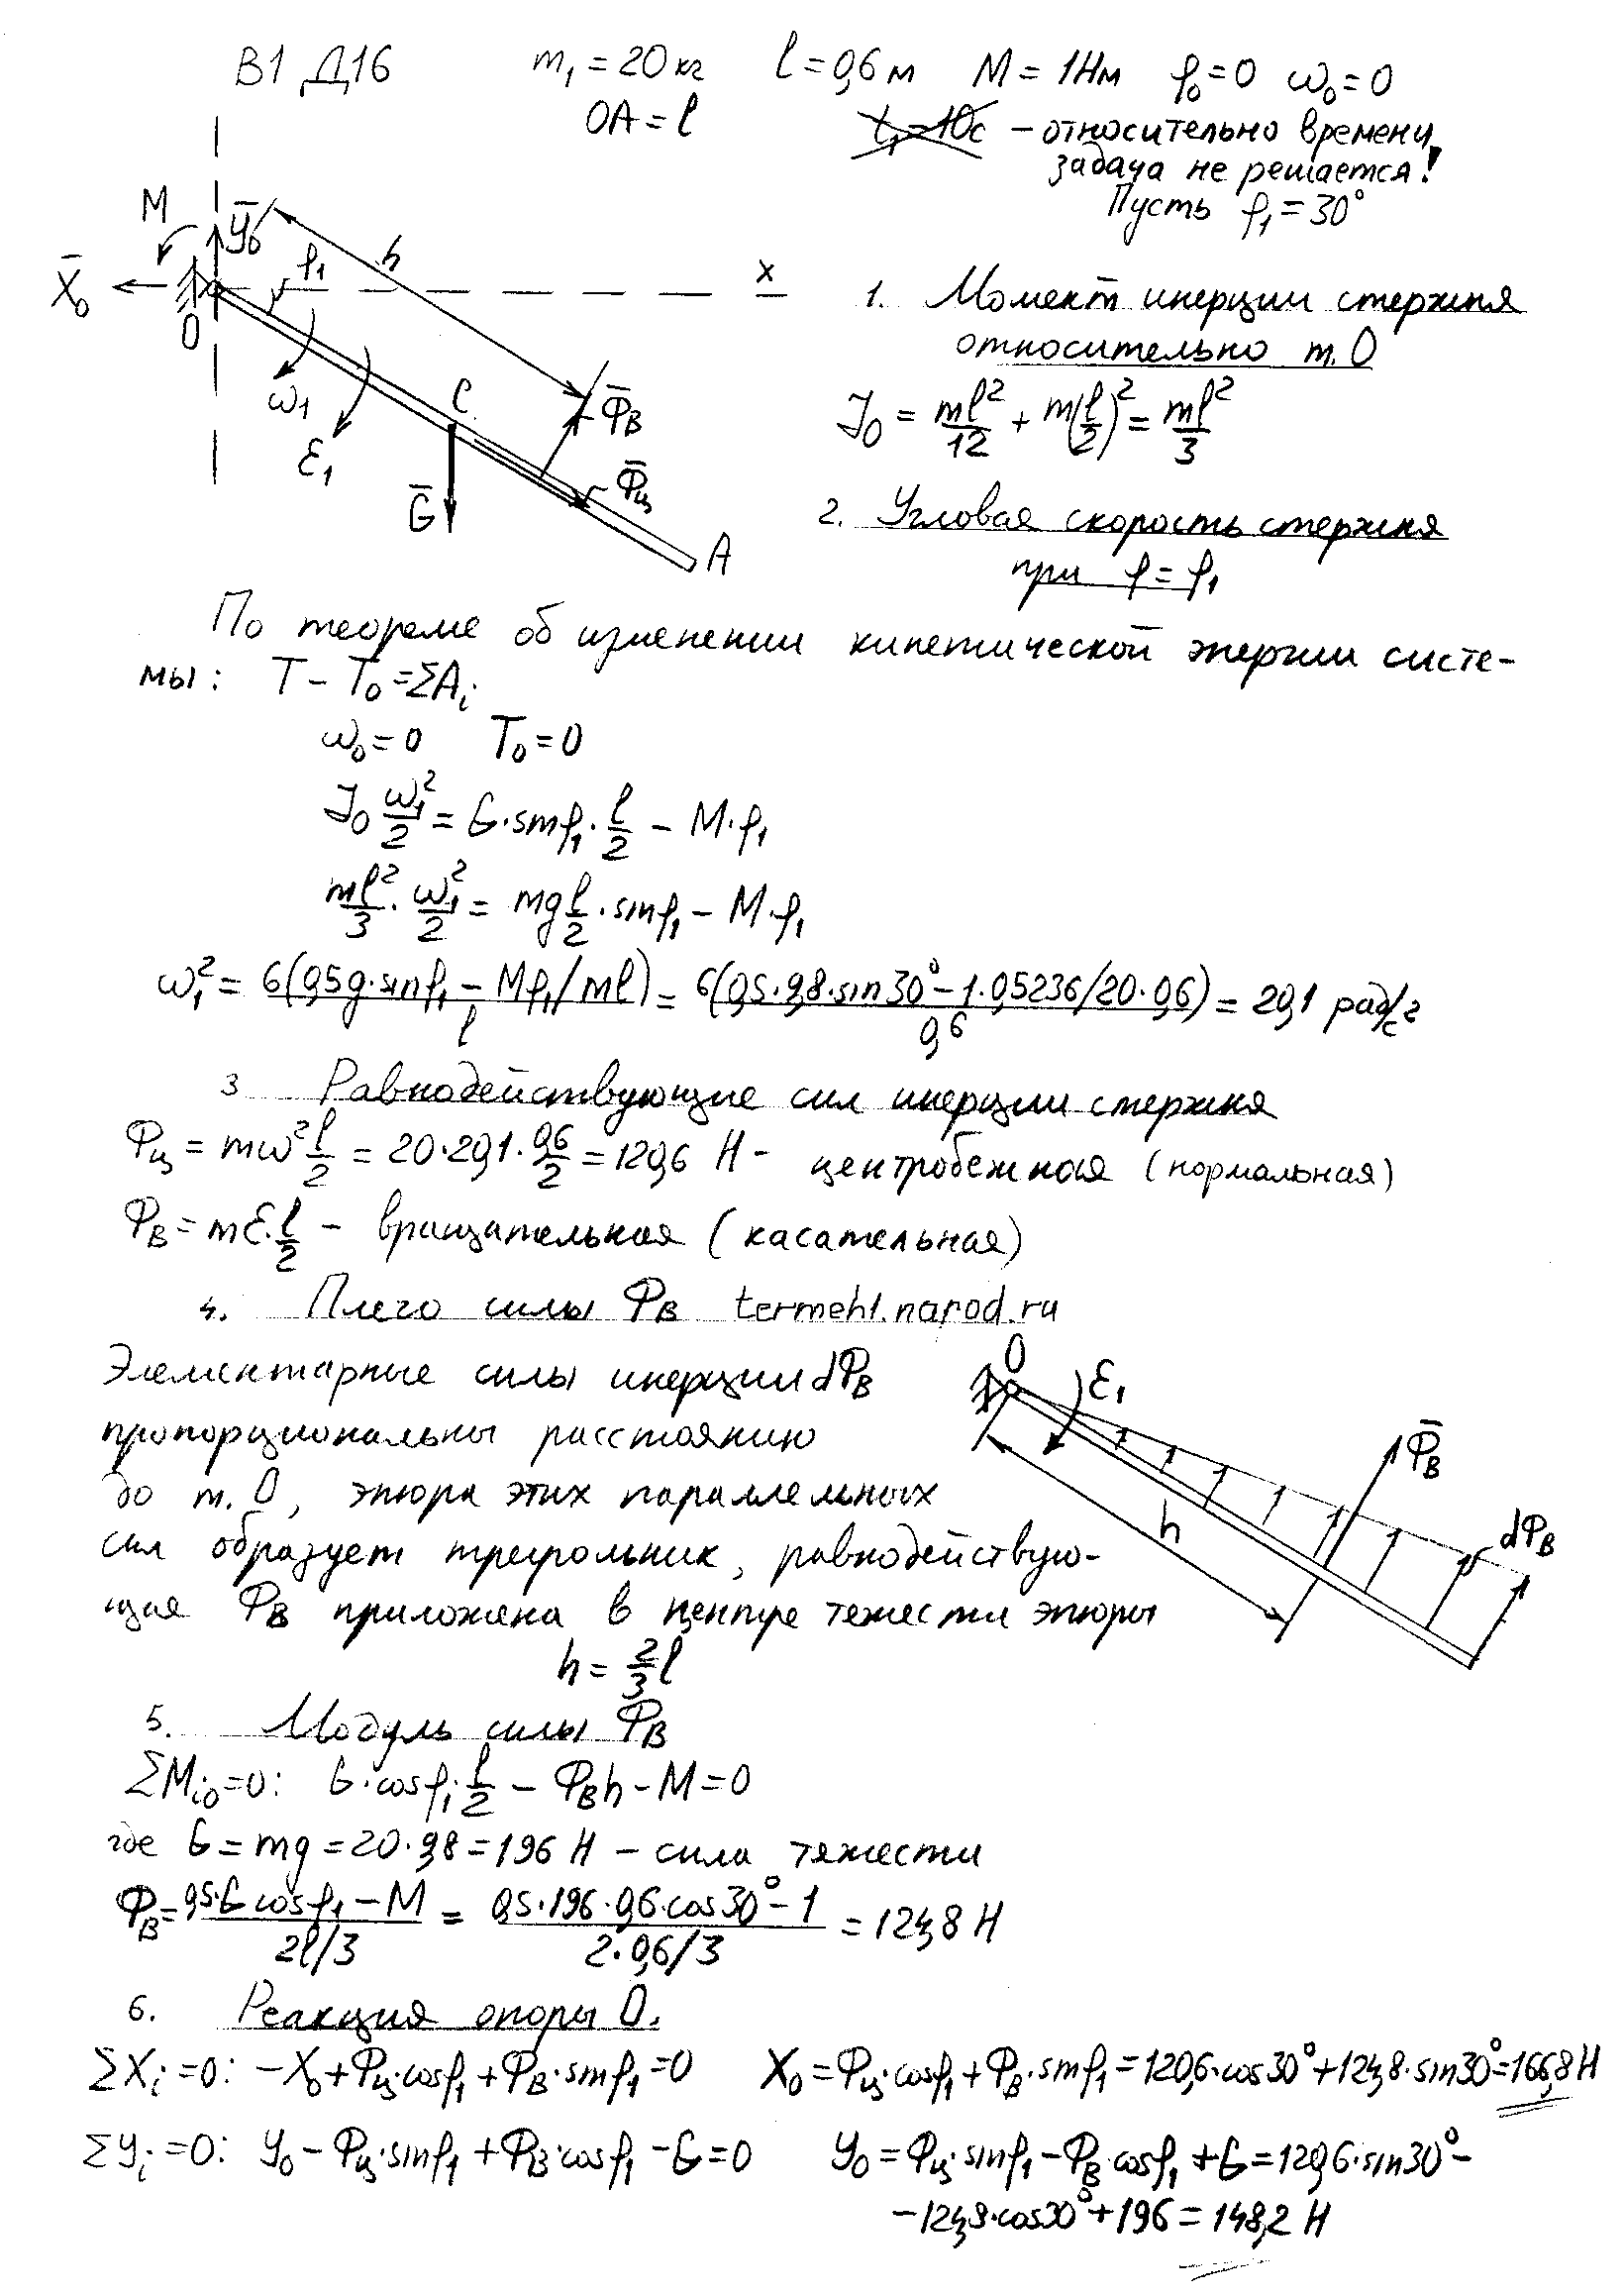 В1 Д16 m₁ = 20 кг l = 0,6 м M = 1Нм φ₀ = 0 ω₀ = 0
OA = l t₁ = 10с – относительно времени
задача не решается!
Пусть φ₁ = 30°
M
Y̅₀
h
φ₁
x
X̅₀
O
ω₁
ε₁
C
Φ̅в
G̅
Φ̅ц
A
1. Момент инерции стержня
относительно т. O
J₀ = ml²/12 + m(l/2)² = ml²/3
2. Угловая скорость стержня
при φ = φ₁
По теореме об изменении кинетической энергии систе-
мы: T – T₀ = ΣAᵢ
ω₀ = 0 T₀ = 0
J₀ ω₁²/2 = G·sinφ₁·l/2 – M·φ₁
ml²/3 · ω₁²/2 = mg l/2 · sinφ₁ – M·φ₁
ω₁² = 6(0,5g·sinφ₁ – Mφ₁/ml)/l = 6(0,5·9,8·sin30° – 1·0,5236/20·0,6)/0,6 = 20,1 рад/с²
3 Равнодействующие сил инерции стержня
Φц = mω² l/2 = 20·20,1·0,6/2 = 120,6 Н – центробежная (нормальная)
Φв = mε·l/2 – вращательная (касательная)
4. Плечо силы Φв termeh1.narod.ru
Элементарные силы инерции dΦв
пропорциональны расстоянию
до т. O, эпюра этих параллельных
сил образует треугольник, равнодействую-
щая Φв приложена в центре тежести эпюры
h = 2/3 l
O
ε₁
Φ̅в
h
dΦв
5. Модуль силы Φв
ΣMᵢ₀ = 0: G·cosφ₁·l/2 – Φвh – M = 0
где G = mg = 20·9,8 = 196 Н – сила тяжести
Φв = 0,5·G cosφ₁ – M/2l/3 = 0,5·196·0,6·cos30° – 1/2·0,6/3 = 124,8 Н
6. Реакция опоры O.
ΣXᵢ = 0: –X₀ + Φц·cosφ₁ + Φв·sinφ₁ = 0 X₀ = Φц·cosφ₁ + Φв·sinφ₁ = 120,6·cos30° + 124,8·sin30° = 166,8 Н
ΣYᵢ = 0: Y₀ – Φц·sinφ₁ + Φв·cosφ₁ – G = 0 Y₀ = Φц·sinφ₁ – Φв·cosφ₁ + G = 120,6·sin30° –
– 124,8·cos30° + 196 = 148,2 Н